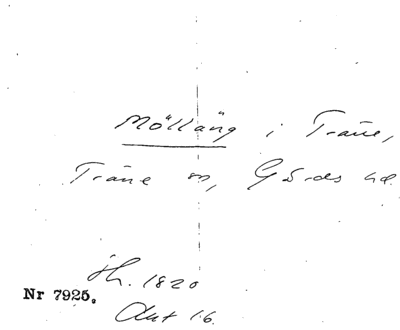 Mölläng i Träne,
Träne sn, Gärds hd
sk. 1820
Nr 7925.
Akt 16.